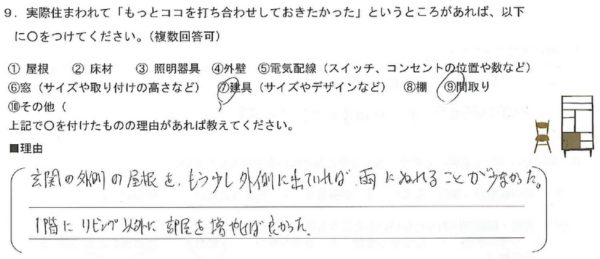 9．実際住まわれて「もっとココを打ち合わせしておきたかった」というところがあれば、以下
に〇をつけてください。（複数回答可）
① 屋根　② 床材　③ 照明器具　④外壁　⑤電気配線（スイッチ、コンセントの位置や数など）
⑥窓（サイズや取り付けの高さなど）　⑦建具（サイズやデザインなど）　⑧棚　⑨間取り
⑩その他（
上記で〇を付けたものの理由があれば教えてください。
■理由
玄関の外側の屋根を、もう少し外側に出ていれば、雨にぬれることが少なかった。
1階にリビング以外に部屋を増やせば良かった。